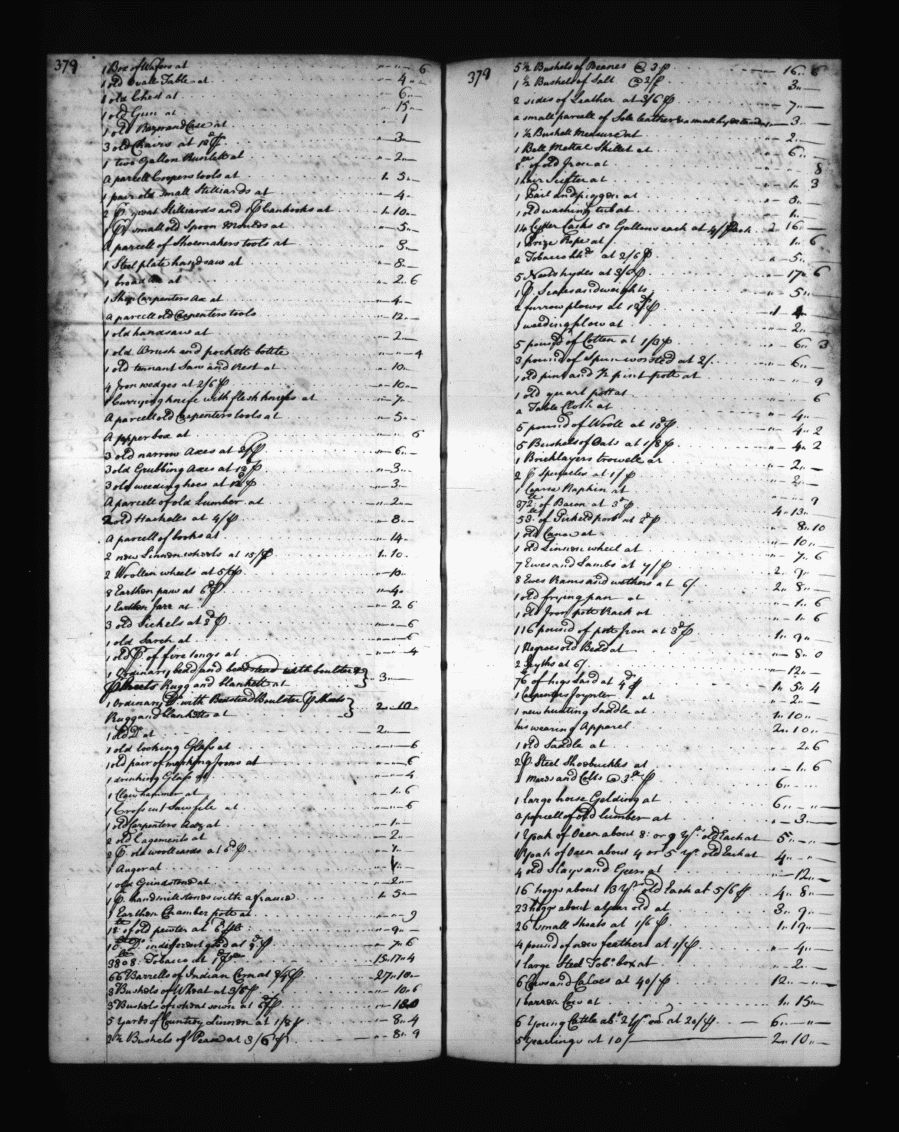 379
1 Box of Wafers at " " 6
1 old Ovall Table at " 4 "
1 old Chest at " 6 "
1 old Gun at " 15 "
1 old and Case at 1
3 old Chairs at 12d " 3 "
1 two Gallon Runlett at " 2 "
A parcell Coopers tools at 1 " 5 "
1 pair old small Stilliards at " 4 "
2 pr great Stilliards and Canhooks at 1 " 10 "
1 pr small old Spoon Moulds at " 5 "
A parcell of Shoemakers tools at " 8 "
1 Steel plate handsaw at " 8 "
1 broad ax at " 2 " 6
1 Ship Carpenters Ax at " 4 "
A parcell old Carpenters tools " 12 "
1 old handsaw at " 2 "
1 old Brush and pockett bottle " " 4
1 old tennant Saw and Rest at " 10 "
4 Iron wedges at 2/6 p " 10 "
1 Currying knife with flesh knifes at " 7 "
A parcell old Carpenters tools at " 5 "
A pepper box at " " 6
3 old narrow Axes at 2/ p " 6 "
3 old Grubbing Axes at 12d p " 3 "
3 old weeding hoes at 12d p " 3 "
A parcell of old Lumber at " 2 "
2 old Hackells at 4/ p " 8 "
A parcell of books at " 14 "
2 new Linnen wheels at 15/ p 1 " 10
2 Woollen wheels at 5/ p " 10 "
8 Earthen pans at 6d p " 4 "
1 Earthen Jarr at " 2 " 6
3 old Sickels at 2d p " " 6
1 old Sarch at " " 6
1 old pr of fire tongs at " " 4
1 Ordinary bedd and beadstead with boulster
Sheets Rugg and blankett at } 3 "
1 Ordinary Do with Beastead Boulster pr Sheets
Rugg and blanketts at } 2 " 10 "
1 old Do at 2 "
1 old looking Glass at " " 6
1 old pair of marking Irons at " " 6
1 drinking Glass at " " 4
1 Claw hammer at " 1 " 6
1 Cross cut Saw file at " " 6
1 old Carpenters Adz at " 1 "
2 old at " 2 "
2 pr old woollcards at 6d p " 1 "
1 Auger at " 1 "
1 old Grindstone at " 2 "
1 pr handmillstones with a frame 1 " 5 "
1 Earthen Chamber pott at " " 9
12 lb of old pewter at 6d " 9 "
10 lb Do indifferent good at 9d p " 7 " 6
3808 Tobacco at 1d p 15 " 17 " 4
66 Barrells of Indian Corn at 8/4 p 27 " 10 "
3 Bushels of Wheat at 3/6 p " 10 " 6
3 Bushels of at 6d p
5 Yards of Country Linnen at 1/8 p " 8 " 4
2 1/2 Bushels of Pease at 3/6 p " 8 " 9
379
5 1/2 Bushels of Beanes @ 3/ p " 16 " 6
1 1/2 Bushels of Salt @ 2/ p 3 "
2 sides of Leather at 3/6 p " 7 "
a small parcell of Sole leather & a small " 3 "
1 1/2 Bushell Measure at " 2 "
1 Bell Mettal Skillet at " 6 "
8 lb of old Iron at 8
1 hair Seifter at " 1 " 3
1 Pail and piggen at " 3 "
1 old washing tub at " 1 "
14 Cyder Casks 50 Gallons each at 4/ p each 2 " 16 "
1 Prize Rope at " 1 " 6
2 Tobacco hhds at 2/6 p " 5 "
5 Neats hydes at 3/6 p " 17 " 6
1 pr Scales and weights " 5 "
2 furrow plows at 12d p 4 "
1 weeding plow at " 2 "
5 pound of Cotten at 1/3 p " 6 " 3
3 pound of Spun worsted at 2/ " 6 "
1 old pint and 1/2 pint pott at " " 9
1 old quart pott at " 6
a Table Cloth at " 4 "
5 pound of Wooll at 10d p " 4 " 2
5 Bushels of Oats at 1/8 p " 4 " 2
1 Bricklayers trowell at " 2 "
2 pr Specticles at 1/ p " 2 "
1 Coarse Napkin at " " 9
372 lb of Bacon at 3d p 4 " 13 "
53 lb of Pickeld pork at 2d p " 8 " 10
1 old Canoe at " 10 "
1 old Linnen wheel at " 7 " 6
7 Ewes and Lambs at 7/ p 2 " 9 "
8 Ewes Rams and wethers at 6/ 2 " 8 "
1 old frying pan at " 1 " 6
1 old Iron pott Rack at " 1 " 6
116 pound of pott Iron at 3d p 1 " 9 "
1 Negroes old Bead at " 8 " 0
2 Scyths at 6/ " 12 "
76 lb of hogs Lard at 4d p 1 " 5 " 4
1 Carpenters Joynter at " 2 "
1 new hunting Saddle at 1 " 10 "
his wearing Apparel 2 " 10 "
1 old Saddle at " 2 " 6
2 pr Steel Shoebuckles at " 1 " 6
2 mares and Colts @ 3 lb p 6 "
1 large horse Gelding at 6 " "
A parcell of old lumber at " 3 "
1 Yoak of Oxen about 8 or 9 yrs old Each at 5 "
1 Yoak of Oxen about 4 or 5 yrs old Each at 4 "
4 old Stags and Geers at " 12 "
16 hoggs about 1 1/3 yrs old Each at 5/6 p 4 " 8 "
23 hoggs about a year old at 3 " 9 "
26 Small Shoats at 1/6 p 1 " 19 "
4 pound of new feathers at 1/ p " 4 "
1 large Steel Tobo box at " 2 "
6 Cows and Calves at 40/ p 12 " "
1 barren Cow at 1 " 15 "
6 Young Cattle abt 2 yrs old at 20/ p 6 " "
5 yearlings at 10/ 2 " 10 "